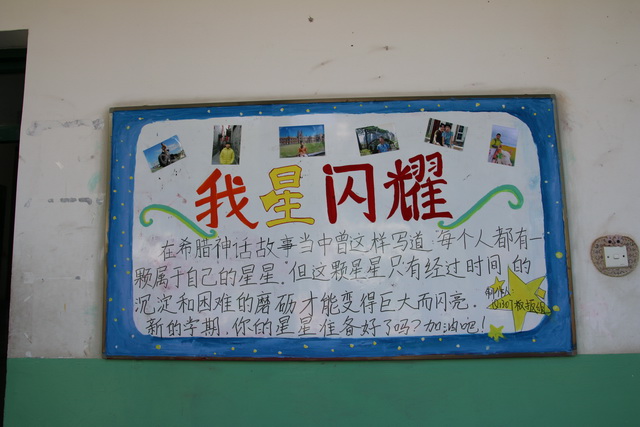 我星闪耀
在希腊神话故事当中曾这样写道 每个人都有一
颗属于自己的星星.但这颗星星只有经过时间的
沉淀和困难的磨砺才能变得巨大而闪亮.
新的学期.你的星星准备好了吗?加油吧!
制作人:
板报组